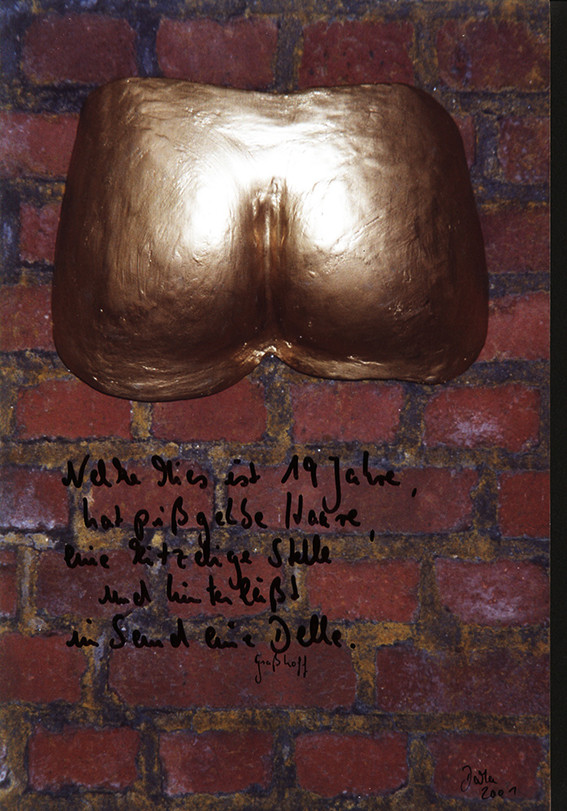 Nelke Mies ist 19 Jahre,
hat pißgelbe Haare,
eine kitzelige Stelle
und hinterläßt
im Sand eine Delle.
Großhoff
2001